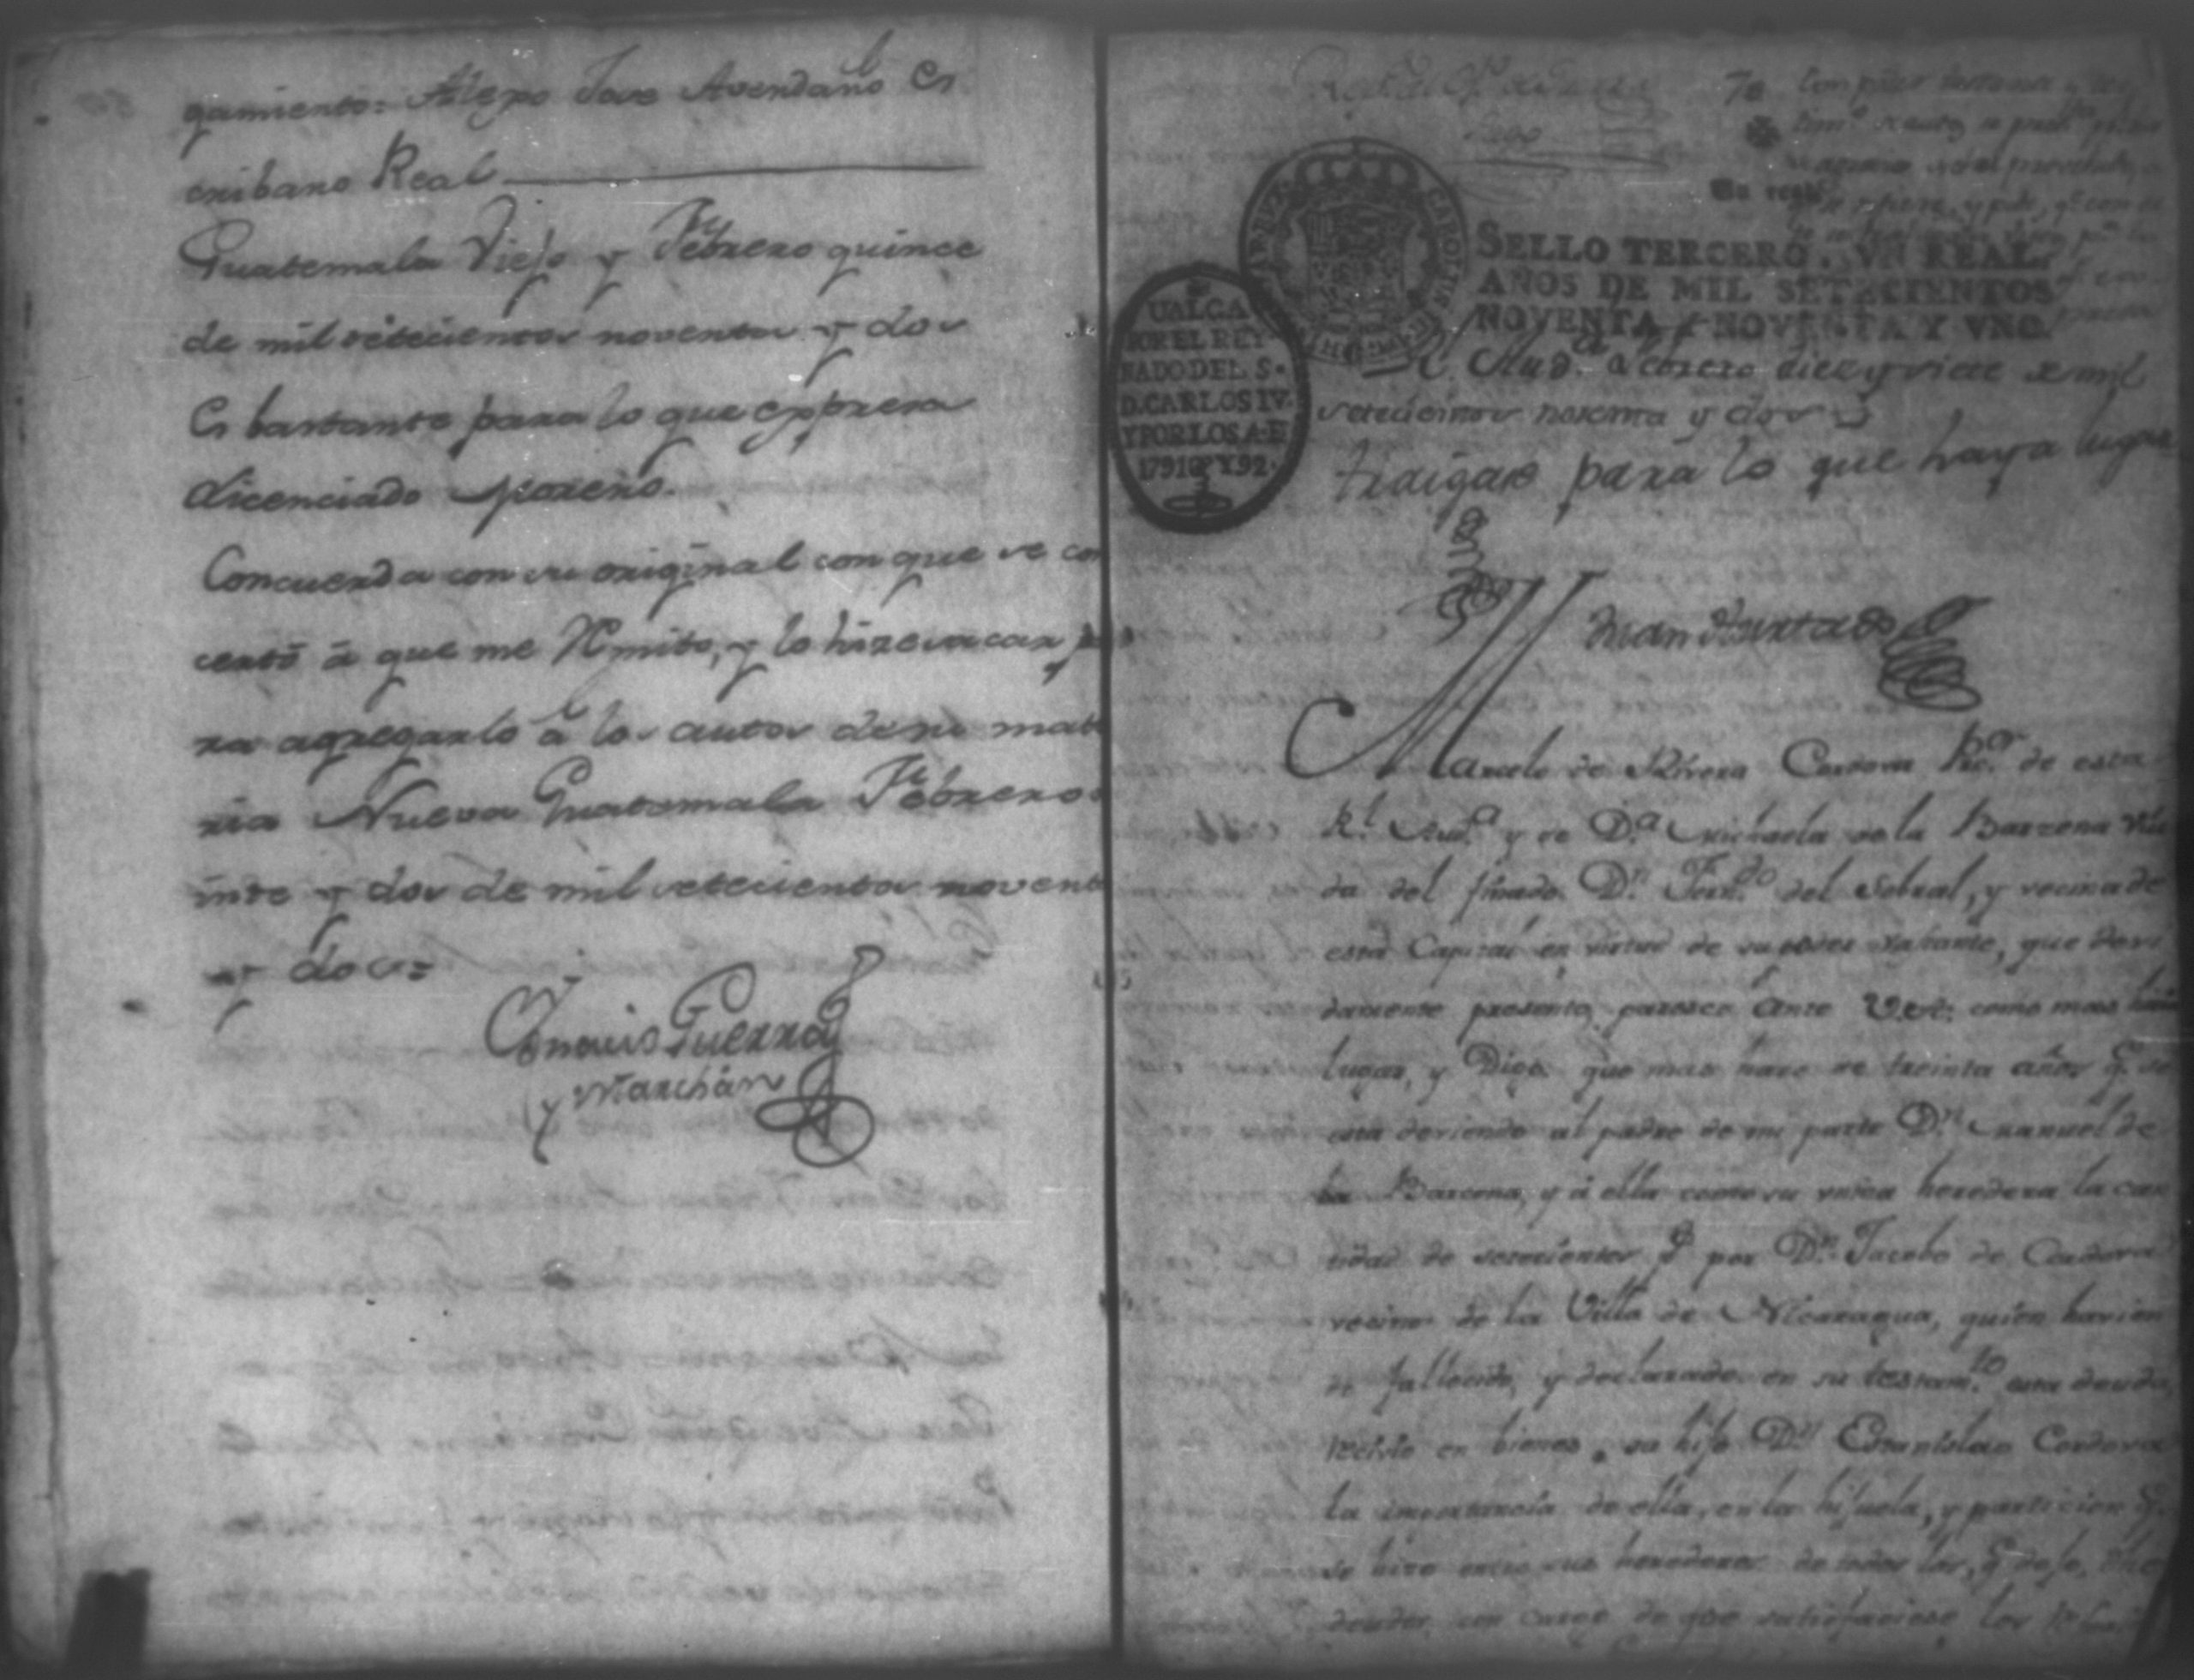 gamiento= Alexo Jose Avendaño Es
cribano Real
Guatemala Vieja y Febrero quince
de mil setecientos noventa y dos
Es bastante para lo que expresa
Licenciado Moreno.
Concuerda con su original con que se con
certó á que me Remito, y lo hize sacar pa
ra agregarlo à los autos de su mate
ria Nueva Guatemala Febrero
inte y dos de mil setecientos noventa
y dos=
Ignacio Guerra
y Marchán
78
SELLO TERCERO. VN REAL.
AÑOS DE MIL SETECIENTOS
NOVENTA Y NOVENTA Y VNO.
UALGA
POR EL REY
NADO DEL S.
D. CARLOS IV.
Y POR LOS A. E
1791 Y 92.
Aud.a Febrero diez y siete de mil
setecientos noventa y dos
traigase para lo que haya lugar
Juan Hurtado
Marcelo de Rivera Cordova Pro.or de esta
R.l Aud.a y de D.a Michaela de la Barzena viu
da del finado D.n Fern.do del Sobral, y vecina de
esta Capital en virtud de su poder bastante, que devi
damente presento, paresco Ante V.A. como mas haia
lugar, y Digo que mas hace de treinta años q. se
esta deviendo al padre de mi parte D.n Manuel de
la Barzena, y á ella como su unica heredera la can
tidad de setecientos p.s por D.n Jacobo de Cordova
vecino de la Villa de Nicaragua, quien havien
do fallecido, y declarado en su testam.to esta deuda,
recivio en bienes su hijo D.n Estanislao Cordova
la importancia de ella, en la hijuela, y particion q.
se hizo entre sus herederos de todos los, q. dejo, el
deudor con cargo de que satisfaciese los